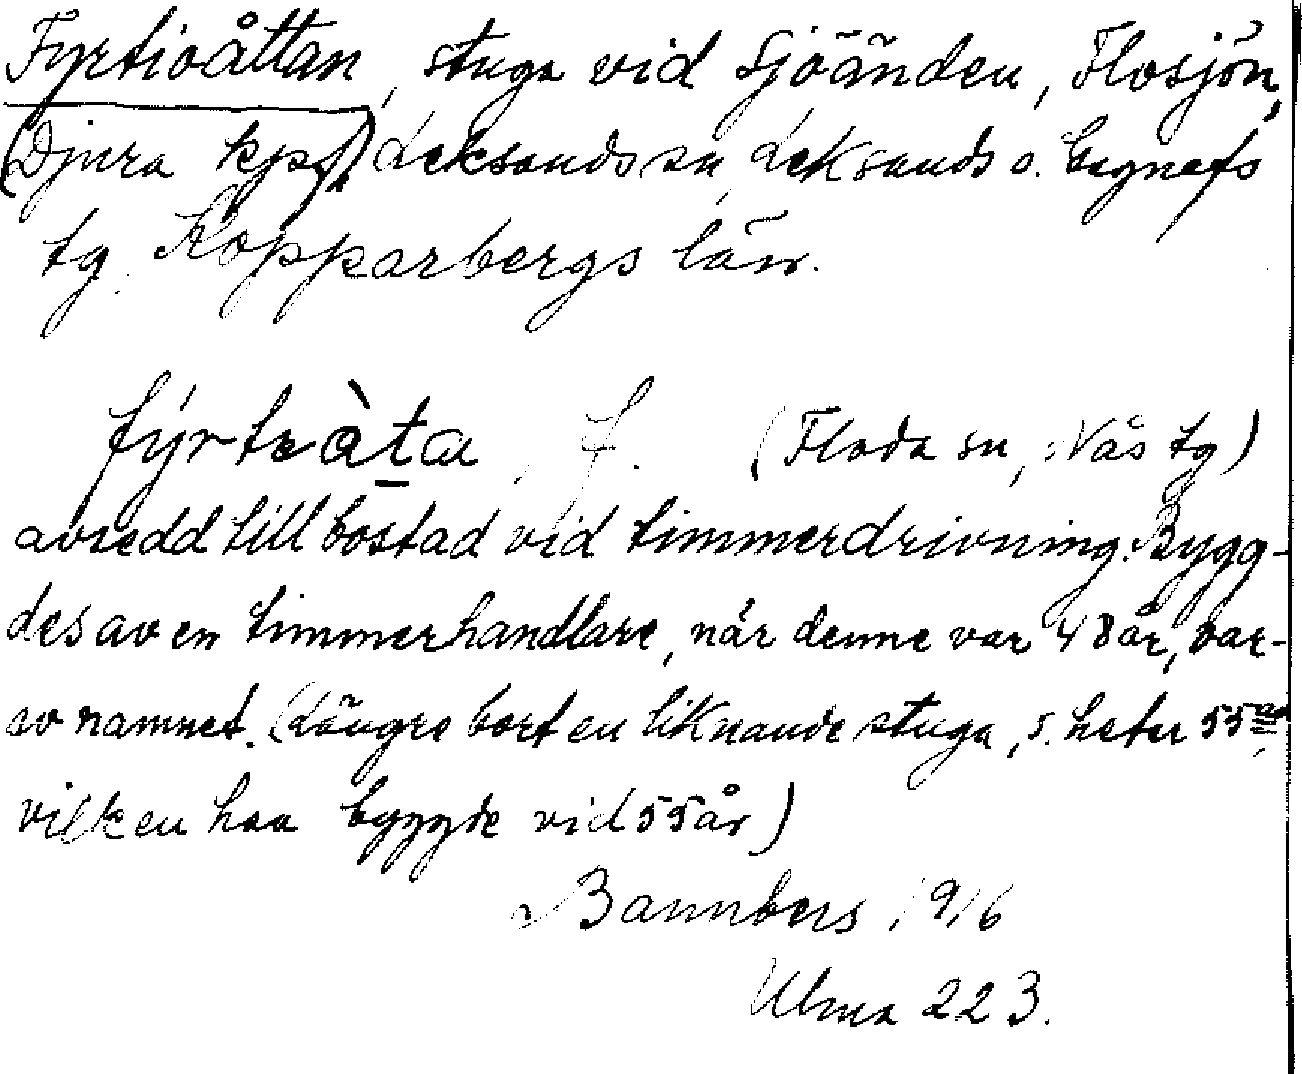 Fyrtioåttan, stuga vid Sjöänden, Flosjön,
(Djura kpf) Leksands sn, Leksands o. Gagnefs
tg. Kopparbergs län.
fýrtɩàta, f. (Floda sn, Nås tg)
avsedd till bostad vid timmerdrivning. Bygg-
des av en timmerhandlare, när denne var 48 år, var-
av namnet. (Längre bort en liknande stuga, s. heter 55an
vilken han byggde vid 55 år)
Bannbers 1916
Ulma 223.